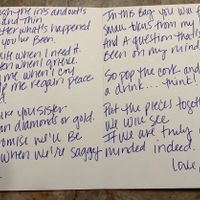 ugh the ins and outs
and Thin
tter what's happened
you've Been.
uite when I need it
ten when I grieve.
me when I cry
p me regain peace
d.
are you sister
an diamonds or gold.
omise we'll Be
when we're saggy
In this Bag you will
small times from my
And A question that's
Been on my mind
So pop the cork and
a drink... think!
Put the pieces together
we will see
If we are truly
minded indeed.
Love